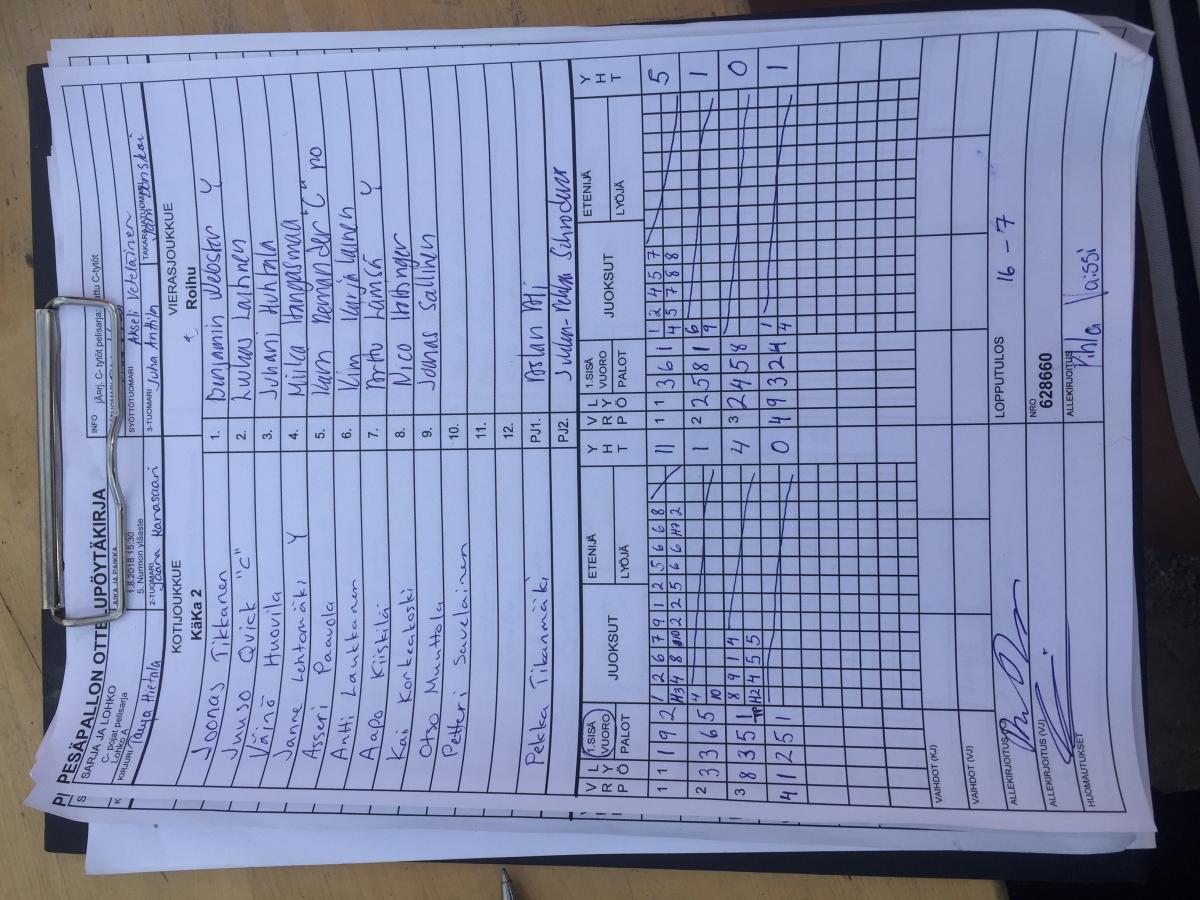 PESÄPALLON OTTELUPÖYTÄKIRJA
INFO
jÄärj. C- tytöt pelisarja:
SARJA JA LOHKO
C- pojat pelisarja
Lohko A
AIKA JA PAIKKA
1.8.2018 15:30
5. Nurmon yläaste
SYÖTTÖTUOMARI Akseli Veteläinen
KIRJURI Tanja Hietala
2-TUOMARI Jaana Karasaari
3-TUOMARI Juha Anttila
TAKARAJATUOMARI
KOTIJOUKKUE
KäKa 2
VIERASJOUKKUE
Roihu
Joonas Tikkanen 1. Benjamin Webster Y
Juuso Qvick "C" 2. Lukas Laitinen
Väinö Huovila 3. Juhani Huhtala
Janne Lehtomäki Y 4. Miika Kangasmaa
Asseri Paavola 5. "C" no
Antti Laukkanen 6. Kim Karjalainen
Aapo Kiiskilä 7. Arttu Lamsä Y
Kai Korkeakoski 8. Nico Ihllinger
Otso Muuttola 9. Joonas Sallinen
Petteri Savelainen 10.
11.
12.
Pekka Tikanmäki PJ1. Aslan Ali
PJ2. Juhan-Pekka Schroderus
V R P L Y Ö 1.SISÄ VUORO PALOT JUOKSUT ETENIJÄ LYÖJÄ Y H T V R P L Y Ö 1.SISÄ VUORO PALOT JUOKSUT ETENIJÄ LYÖJÄ Y H T
1 1 1 9 2 1 2 6 7 9 1 2 5 6 6 8 11 1 1 3 6 1 1 2 4 5 7 5
H3 4 8 10 2 2 5 6 6 H7 2 4 5 7 8 8
2 3 3 6 5 4 1 2 2 5 8 1 6 1
10 9
3 8 3 5 1 8 9 1 4 4 3 2 4 5 8 0
H2 4 5 5
4 1 2 5 1 0 4 9 3 2 4 1 1
4
VAIHDOT (KJ)
VAIHDOT (VJ)
ALLEKIRJOITUS (KJ) LOPPUTULOS 16 - 7
ALLEKIRJOITUS (VJ) NRO
628660
HUOMAUTUKSET ALLEKIRJOITUS Pihla Vaissi